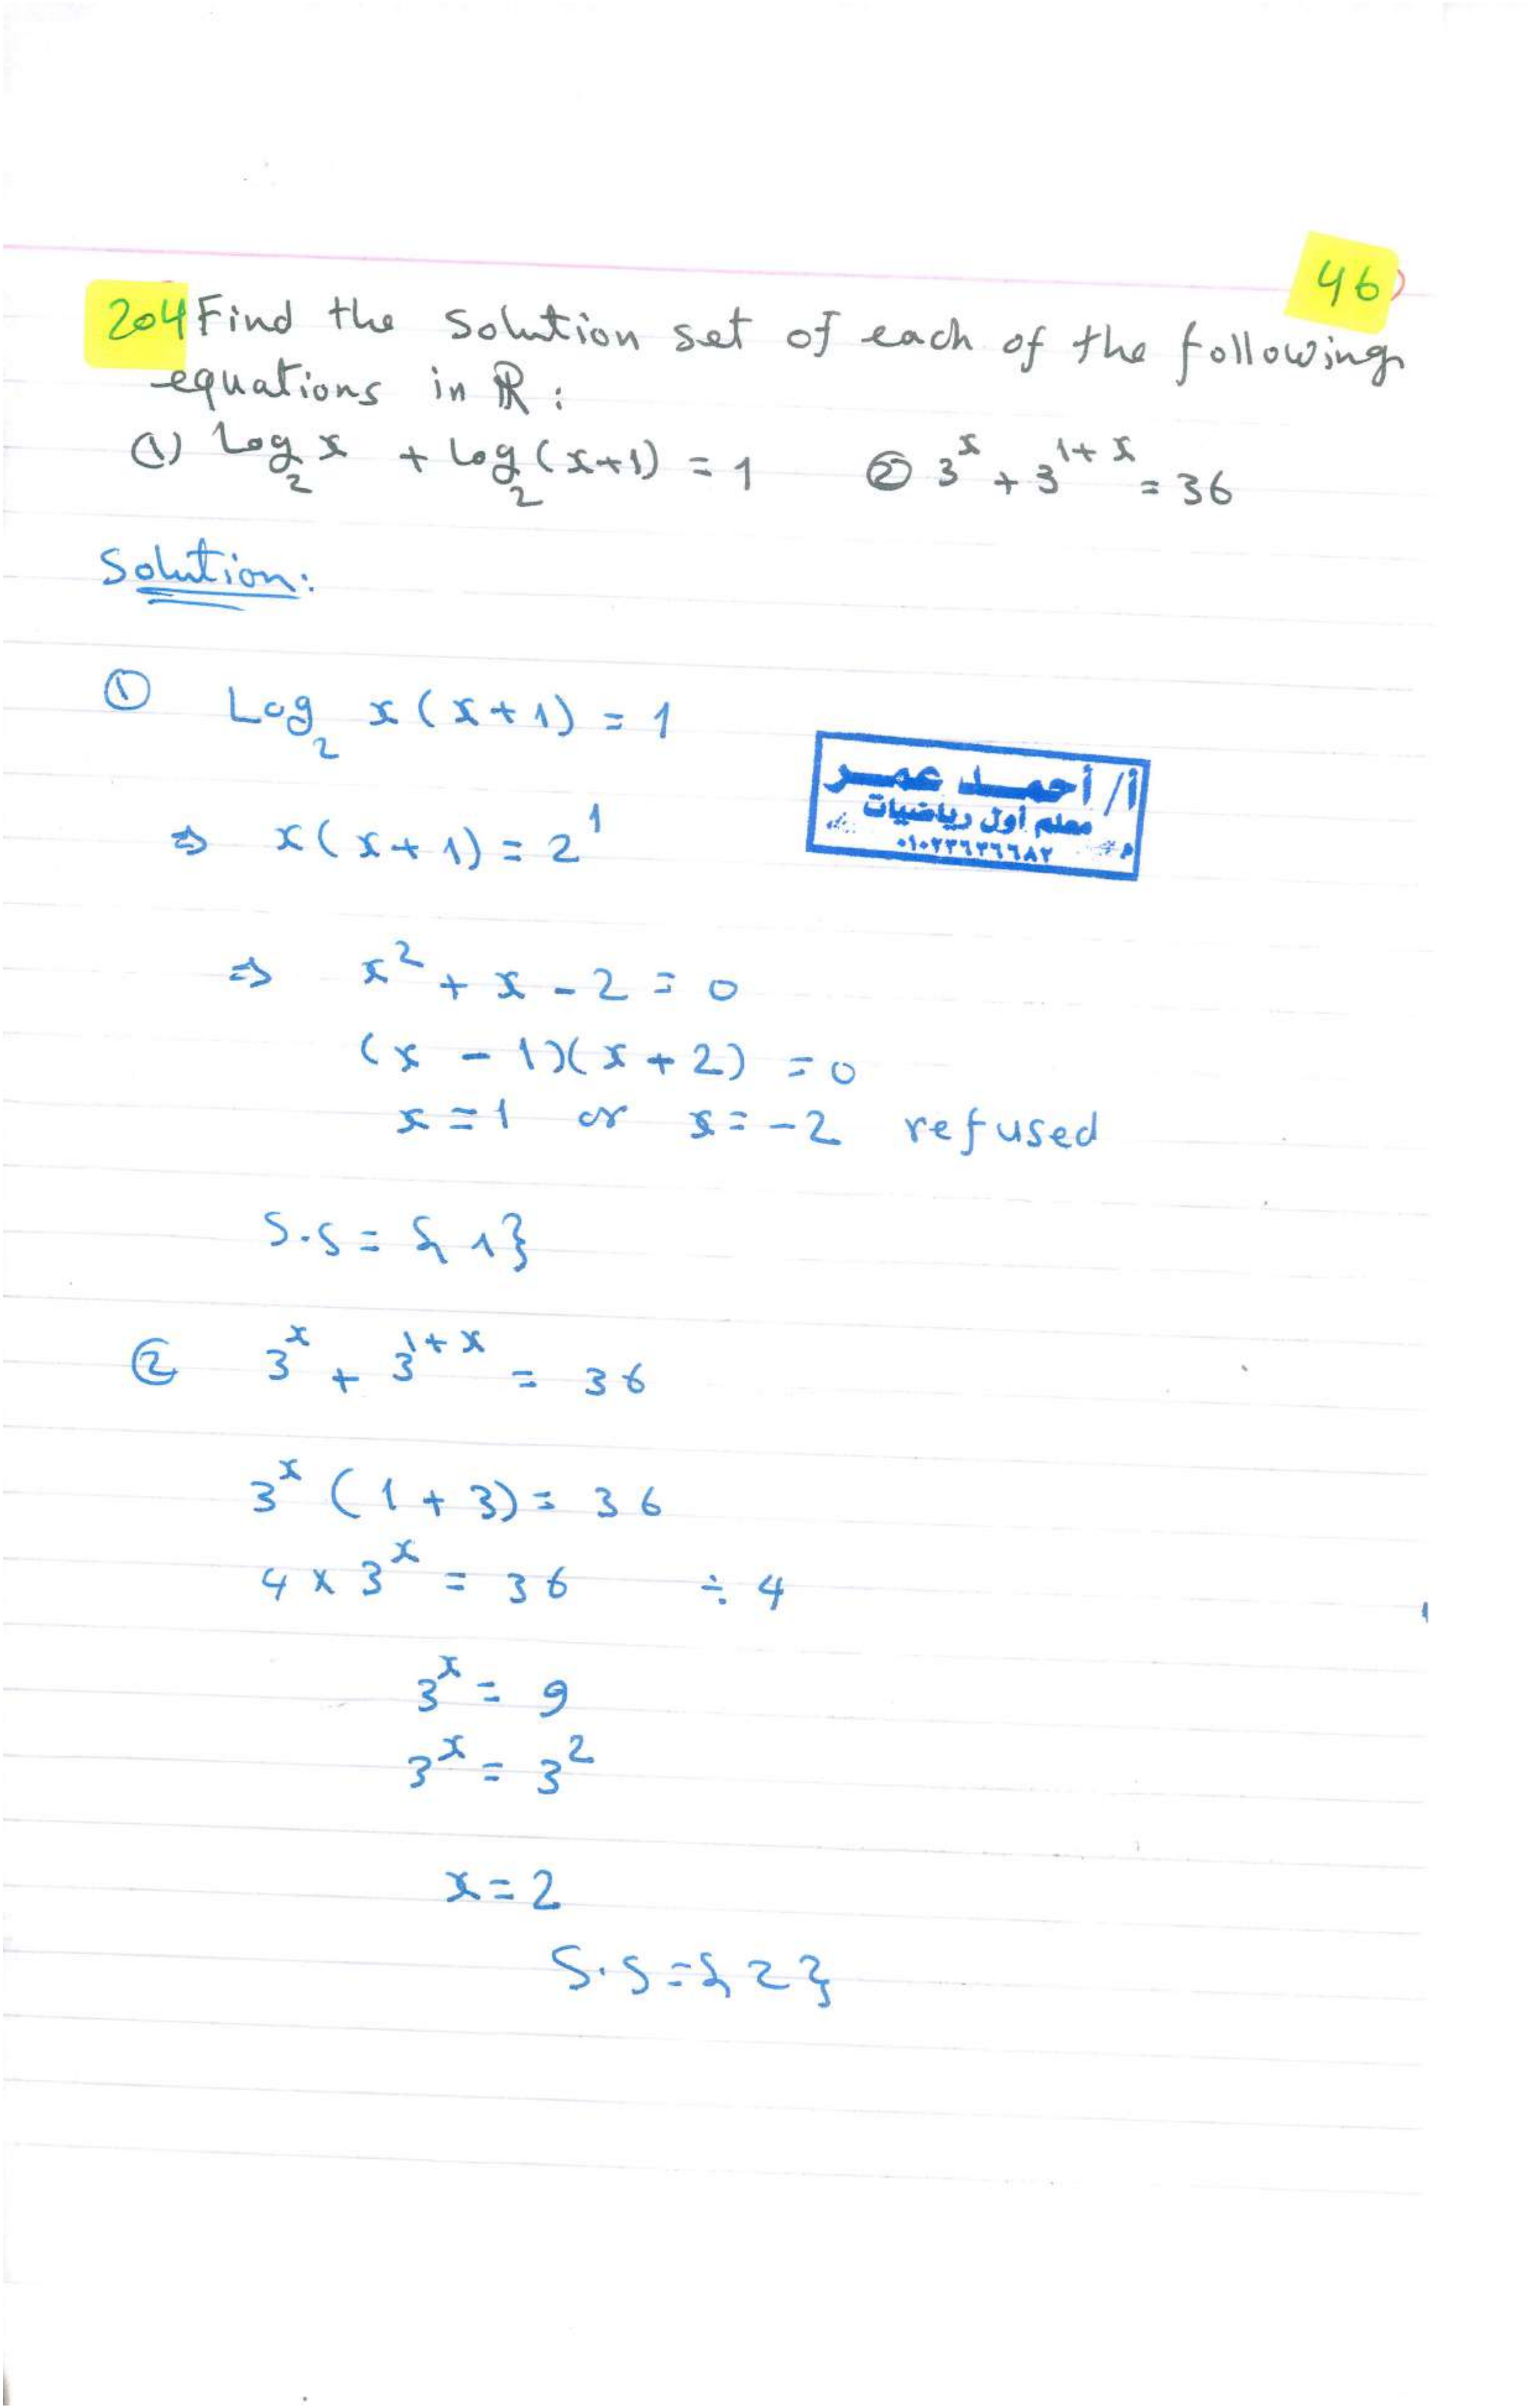 46)
204 Find the solution set of each of the following
equations in ℝ:
(1) Log₂ x + Log₂ (x+1) = 1   ② 3^x + 3^(1+x) = 36
Solution:
① Log₂ x(x+1) = 1
أ/ أحمد عمر
معلم أول رياضيات
⇒ x(x+1) = 2^1
⇒ x² + x - 2 = 0
(x - 1)(x + 2) = 0
x = 1 or x = -2 refused
S.S = {1}
② 3^x + 3^(1+x) = 36
3^x (1 + 3) = 36
4 × 3^x = 36   ÷ 4
3^x = 9
3^x = 3²
x = 2
S.S = {2}